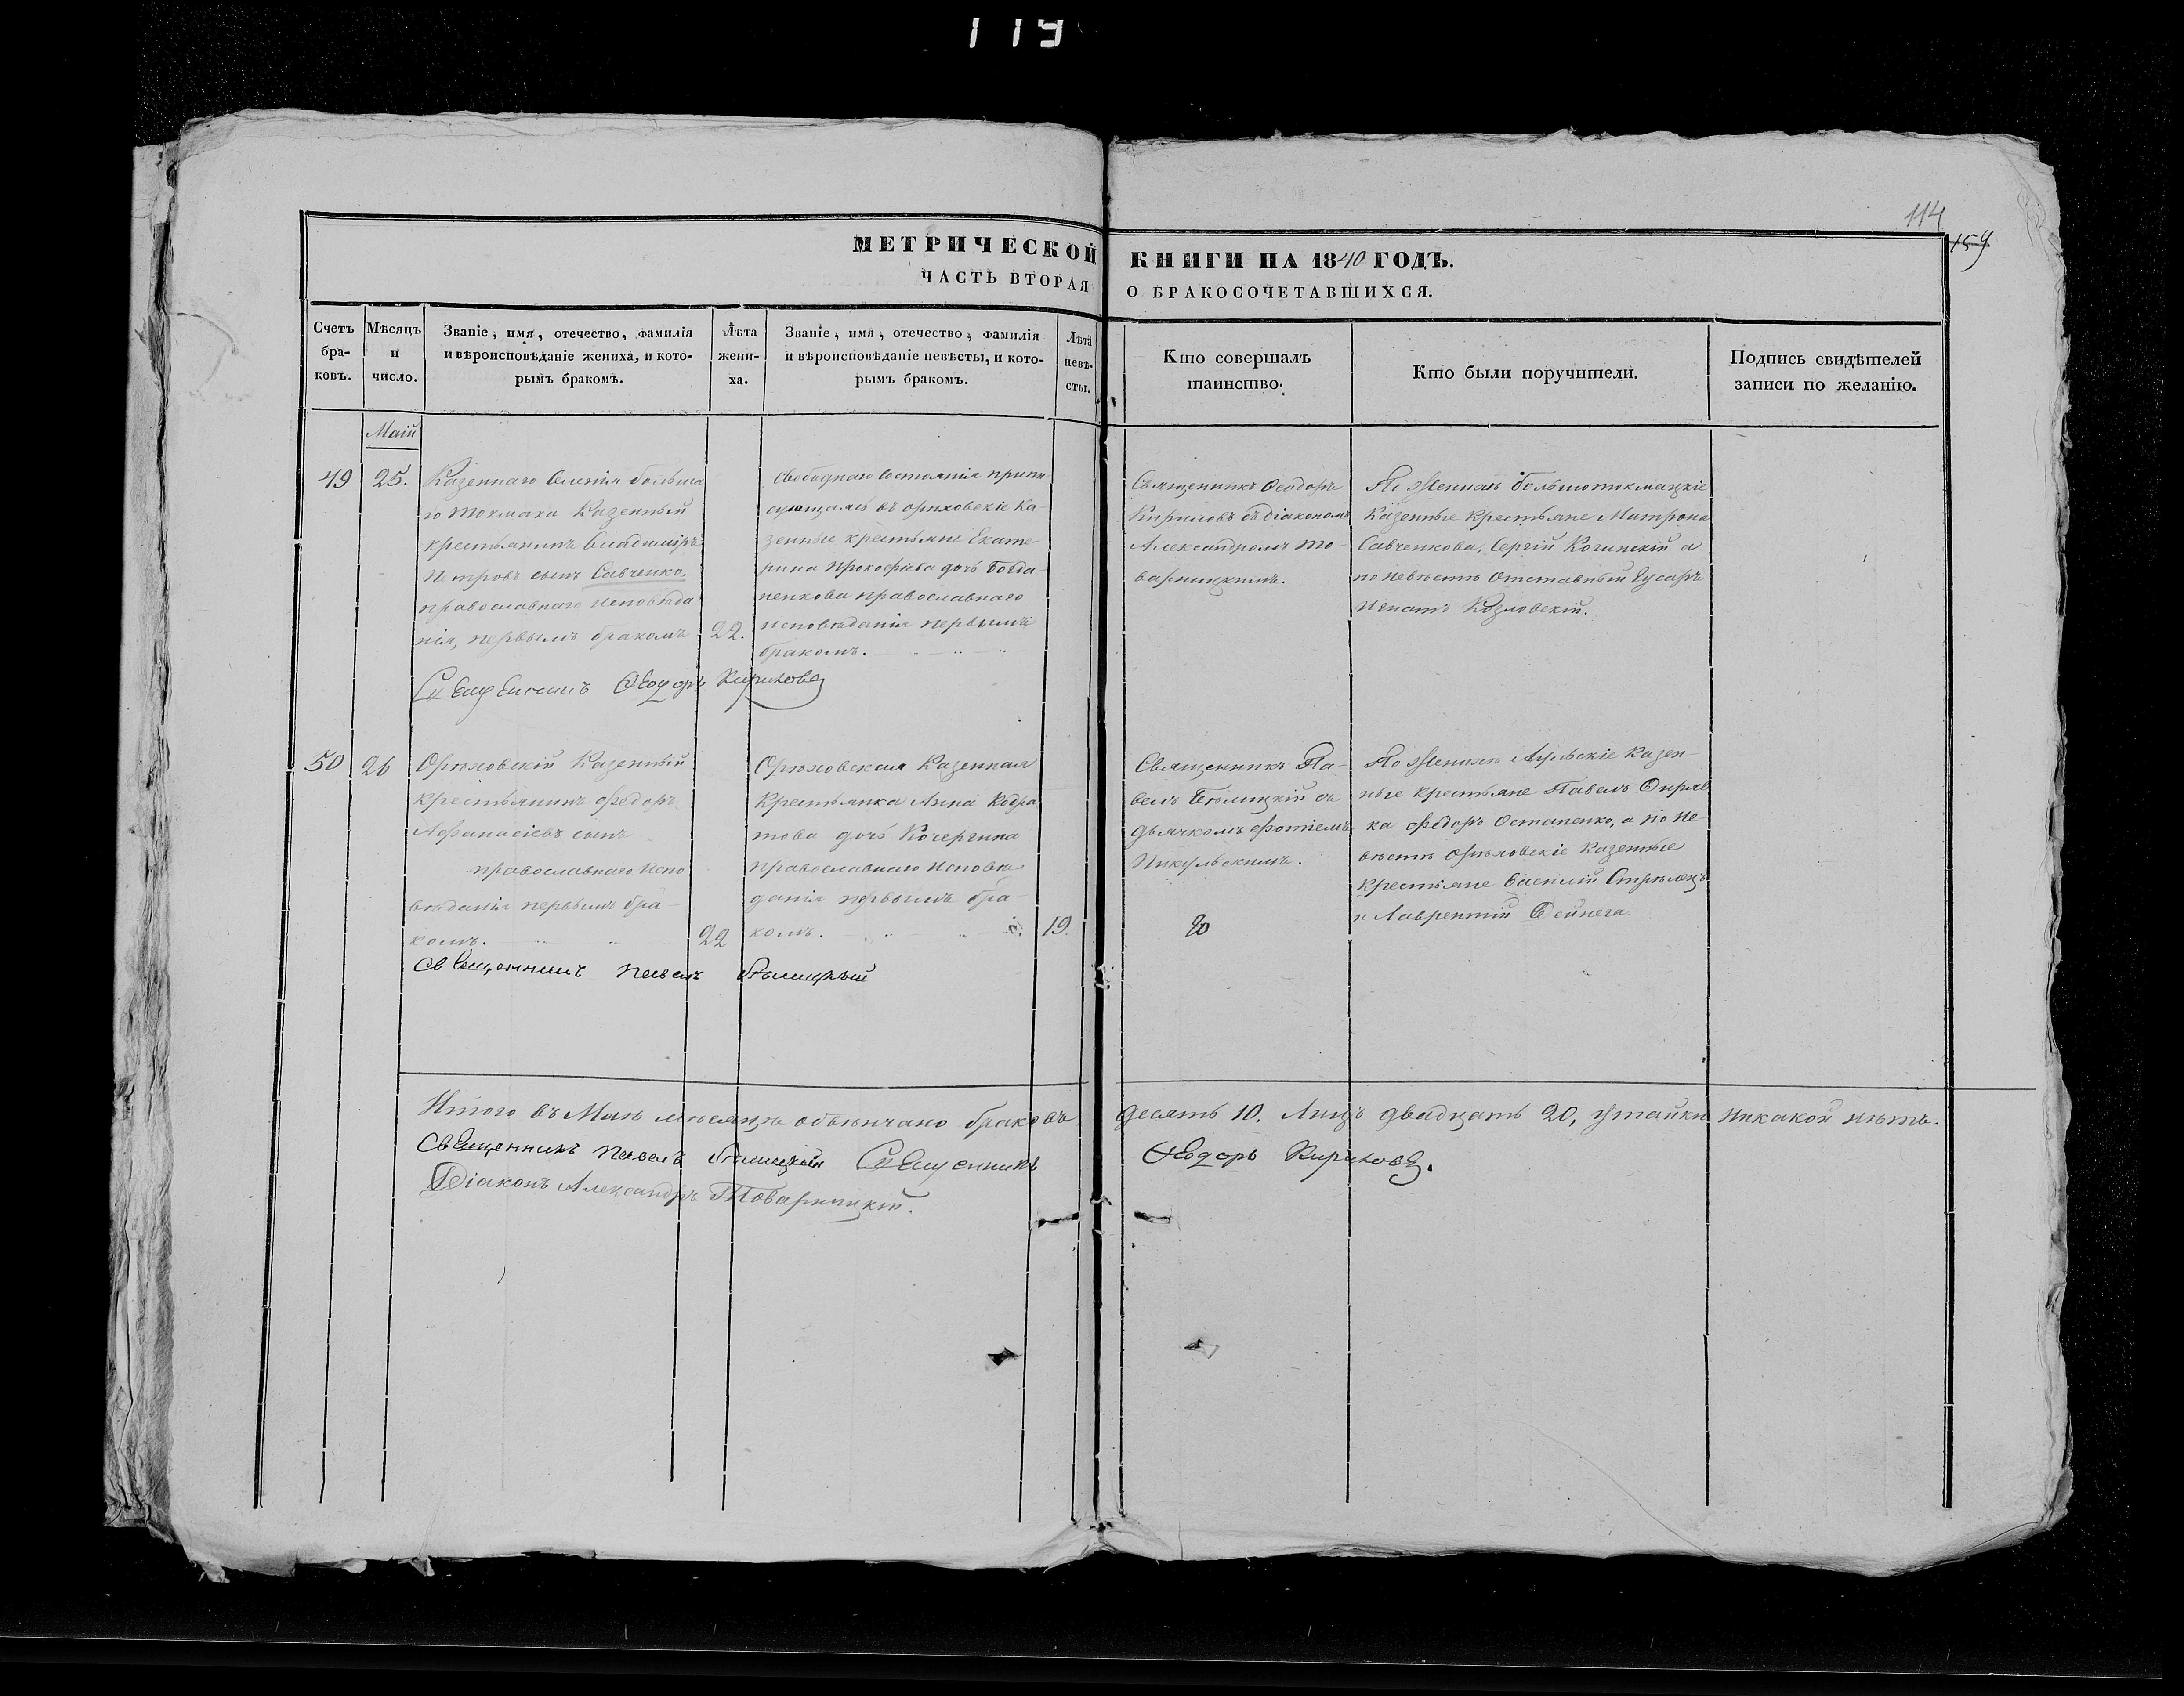 119
114
159
МЕТРИЧЕСКОЙ КНИГИ НА 1840 ГОДЪ.
ЧАСТЬ ВТОРАЯ О БРАКОСОЧЕТАВШИХСЯ.
Счетъ
бра-
ковъ.
Мѣсяцъ
и
число.
Званіе, имя, отечество, фамилія
и вѣроисповѣданіе жениха, и кото-
рымъ бракомъ.
Лѣта
жени-
ха.
Званіе, имя, отечество, фамилія
и вѣроисповѣданіе невѣсты, и кото-
рымъ бракомъ.
Лѣта
невѣ-
сты.
Кто совершалъ
таинство.
Кто были поручители.
Подпись свидѣтелей
записи по желанію.
Маій
49
25.
Казеннаго Селенія больша
го Токмака Казенный
крестьянинъ Владимиръ
Петровъ сынъ Савченко,
православнаго исповѣда
нія, первымъ бракомъ
22.
Свободнаго состоянія припи
сующаясь въ орѣховскіе Ка
зенные крестьяне Екате-
рина Прокофіева дочь Богда-
ненкова православнаго
исповѣданія первымъ
бракомъ.
Священникъ Ѳеодоръ
Кириловъ съ діакономъ
Александромъ То-
варницкимъ.
По Жениху большотокмацкіе
Казенные крестьяне Матрона
Савченкова, Сергій Кочинскій а
по невѣстѣ Отставный Гусаръ
Игнатъ Козловскій.
Священникъ Ѳеодоръ Кириловъ
50
26
Орѣховскій Казенный
крестьянинъ Федоръ
Афанасіевъ сынъ
православнаго испо
вѣданія первымъ бра-
комъ.
22
Орѣховская Казенная
Крестьянка Анна Кодра
това дочь Кочергина
православнаго исповѣ
данія первымъ бра-
комъ.
19.
Священникъ Па-
велъ Бѣлицкій съ
дьячкомъ Фотіемъ
Никульскимъ.
20
По Жениху Казен-
ные крестьяне Павелъ
ка Федоръ Остапенко, а по не-
вѣстѣ Орѣховскіе Казенные
Крестьяне Василій Стрѣлецъ
и Лаврентій Дейнега.
Священникъ Павелъ Бѣлицкій
Итого въ Маѣ мѣсяцѣ обвѣнчано браковъ десять 10. Лицъ двадцать 20, утайки никакой нѣтъ.
Священникъ Павелъ Бѣлицкій Священникъ Ѳеодоръ Кириловъ.
Діаконъ Александръ Товарницкій.